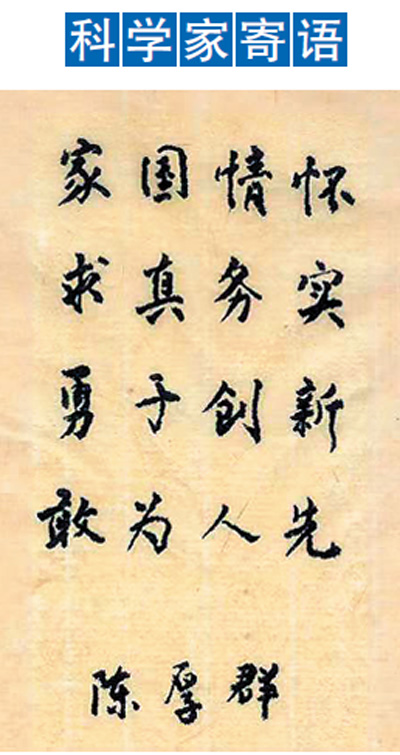 科学家寄语
家国情怀
求真务实
勇于创新
敢为人先
陈厚群